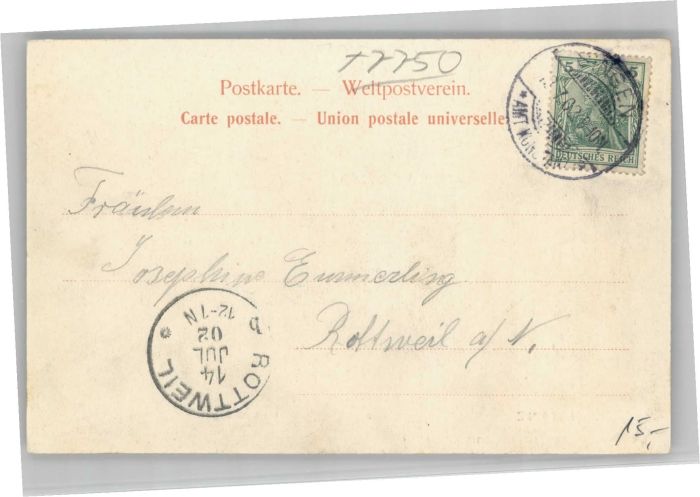 +2250
Postkarte. — Weltpostverein.
Carte postale. — Union postale universelle
5 5
DEUTSCHES REICH
* AMT
Fräulein
Josephine Emmerling
Rottweil a/N.
ROTTWEIL *
14
JUL
02
12-1N
15,-